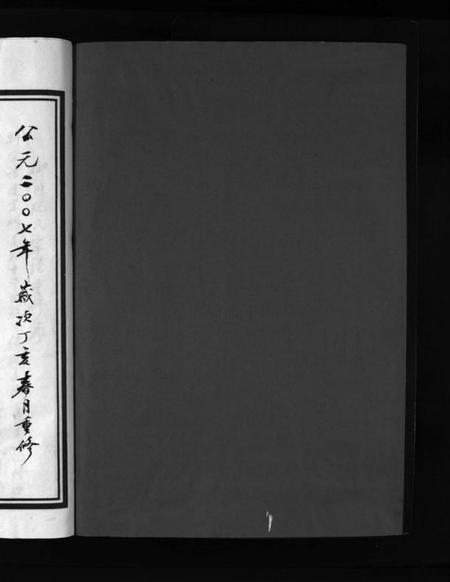 公元二〇〇七年歲次丁亥春月重修